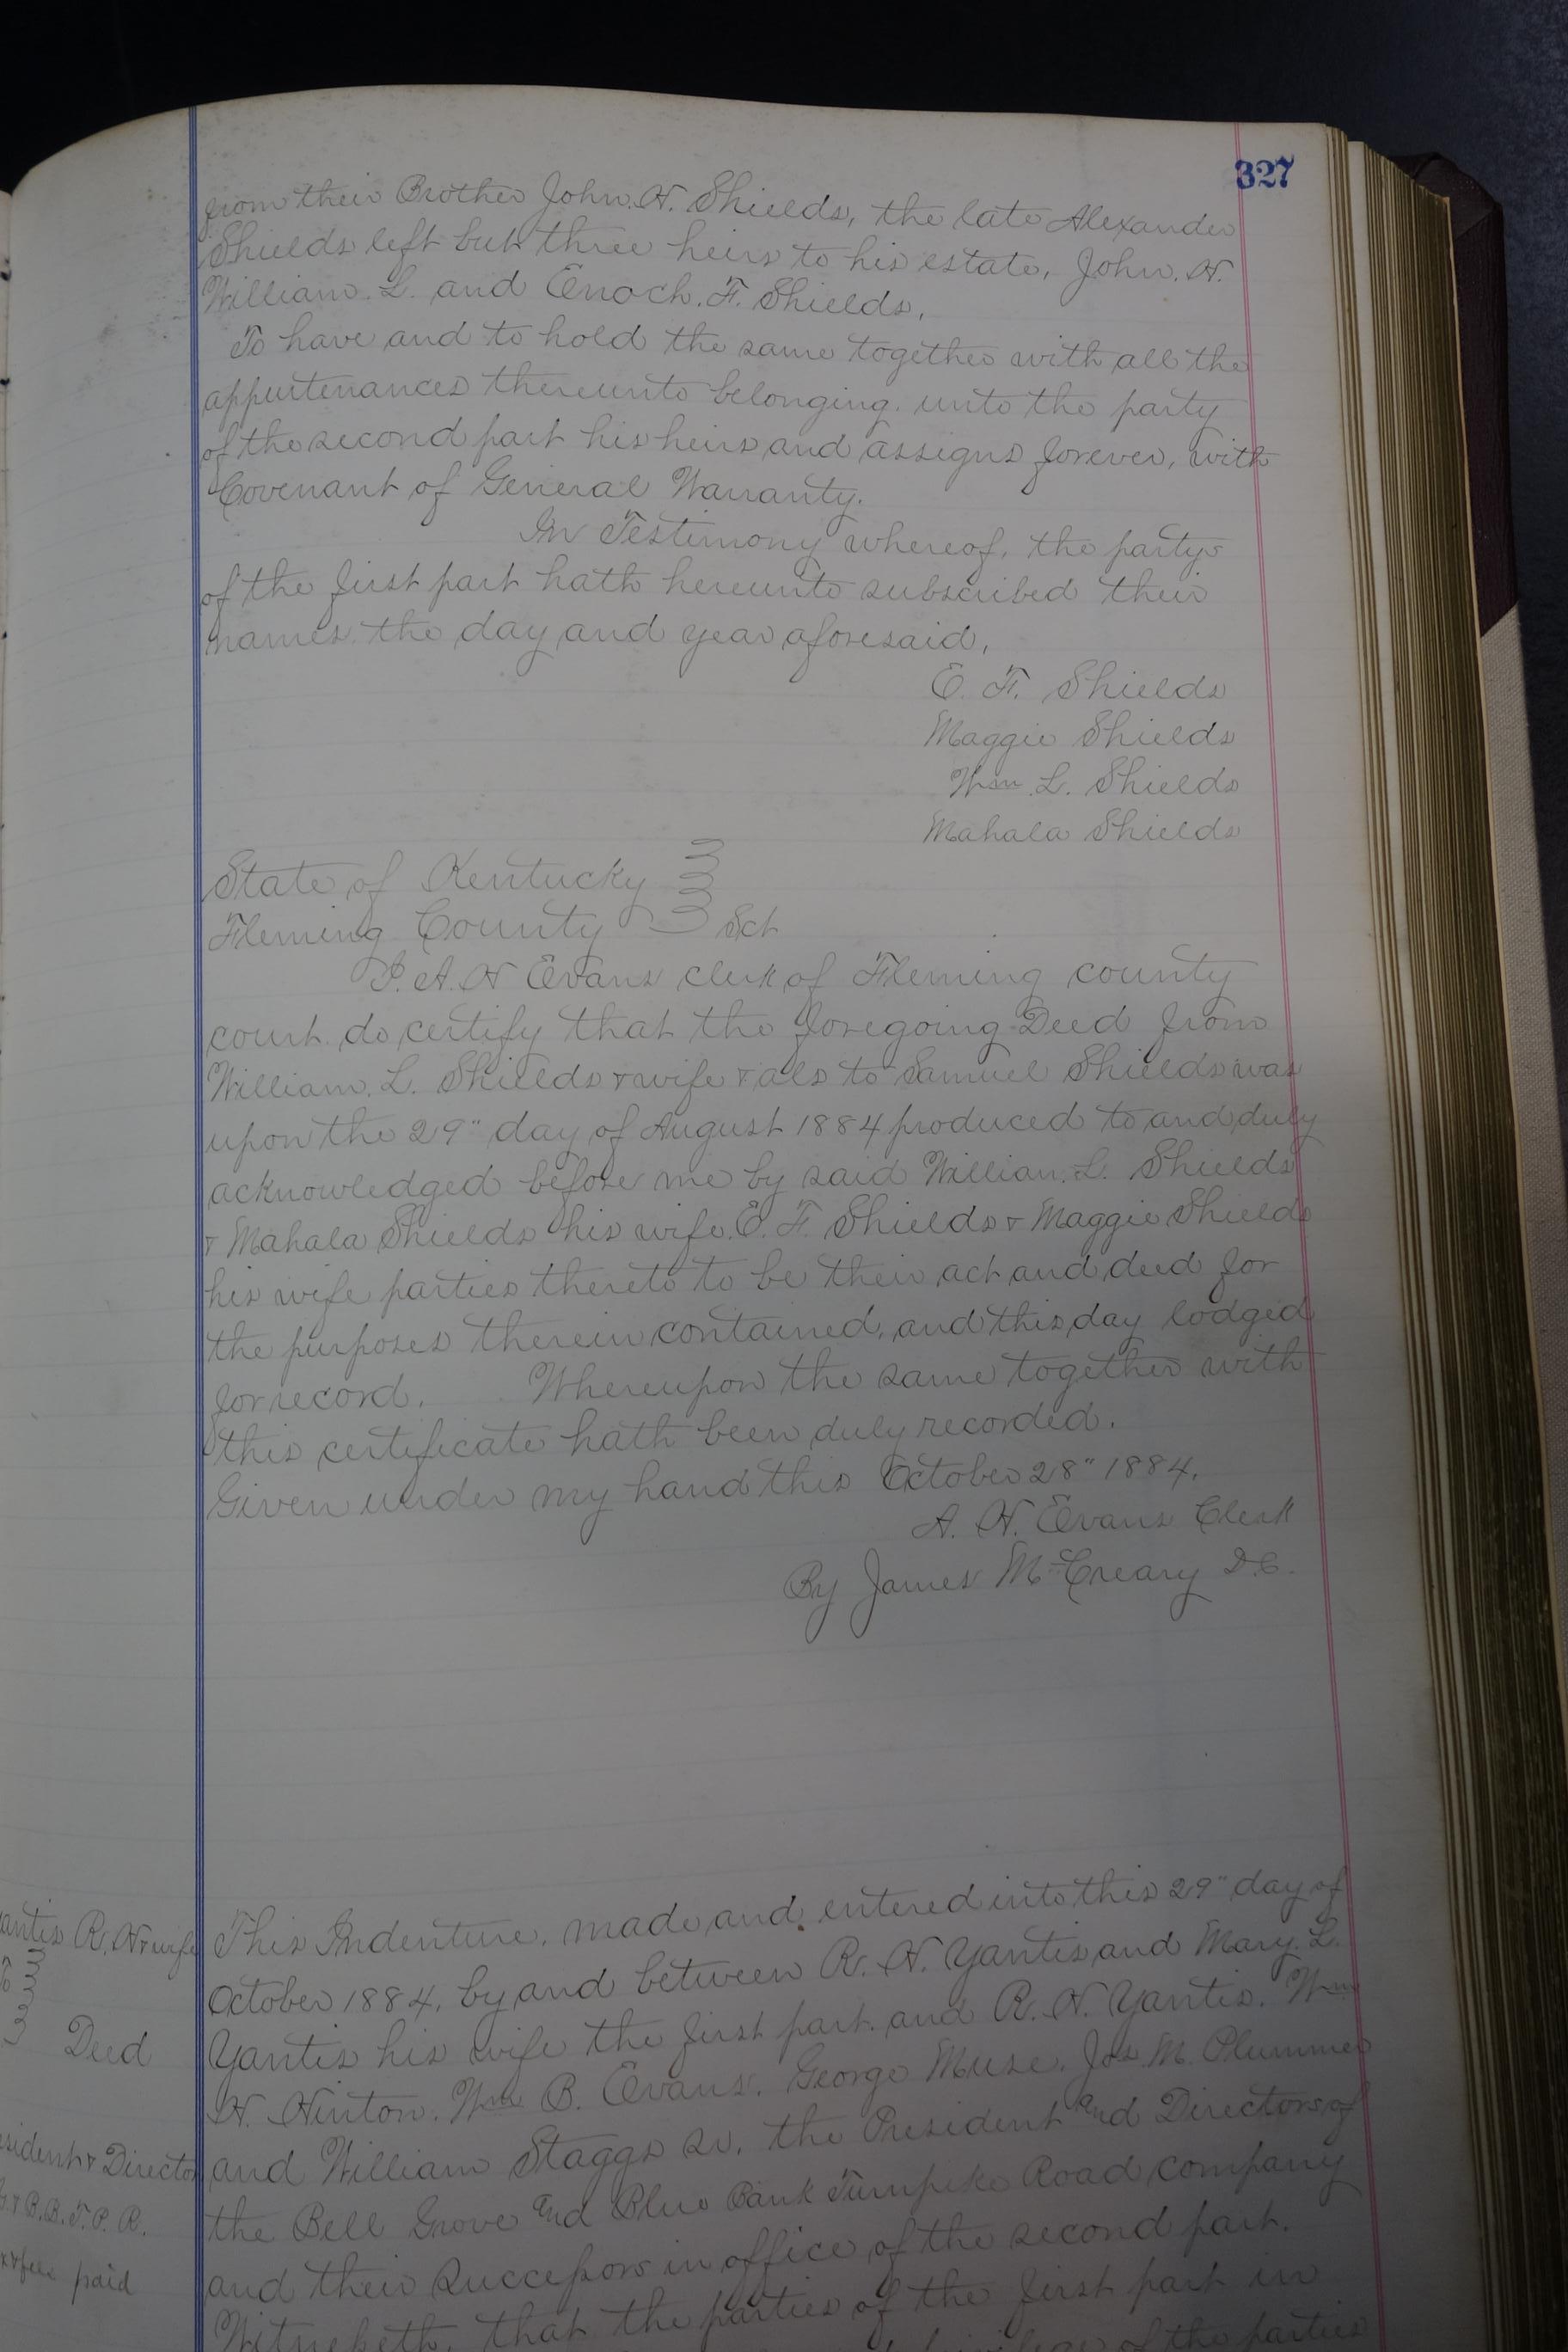 327
from their Brother John. H. Shields, the late Alexander
Shields left but three heirs to his estate, John. H.
William. L. and Enoch. F. Shields,
To have and to hold the same together with all the
appurtenances thereunto belonging. unto the party
of the second part his heirs and assigns forever, with
Covenant of General Warranty.
In Testimony whereof, the partys
of the first part hath hereunto subscribed their
names. the day and year aforesaid,
E. F. Shields
Maggie Shields
Wm. L. Shields
Mahala Shields
State of Kentucky
Fleming County Sct
I. A. H Evans clerk of Fleming county
court do certify that the foregoing Deed from
William. L. Shields & wife & als to Samuel Shields was
upon the 29" day of August 1884 produced to and duly
acknowledged before me by said William. L. Shields
& Mahala Shields his wife. E. F. Shields & Maggie Shields
his wife parties thereto to be their act and deed for
the purposes therein contained, and this day lodged
for record. Whereupon the same together with
this certificate hath been duly recorded.
Given under my hand this October 28" 1884.
A. H. Evans Clerk
By James McCreary D.C.
antis R. H & wife
To
Deed
esident & Director
& B.B.T.P.R.
fees paid
This Indenture, made and entered into this 29" day of
October 1884, by and between R. H. Yantis and Mary. L.
Yantis his wife the first part. and R. H. Yantis. Wm
H. Hinton. Wm B. Evans. George Muse. Jos. M. Plummer
and William Staggs Sr. the President and Directors of
the Bell Grove and Blue Bank Turnpike Road company
and their Successors in office of the second part.
Witnesseth, that the parties of the first part in
of the parties